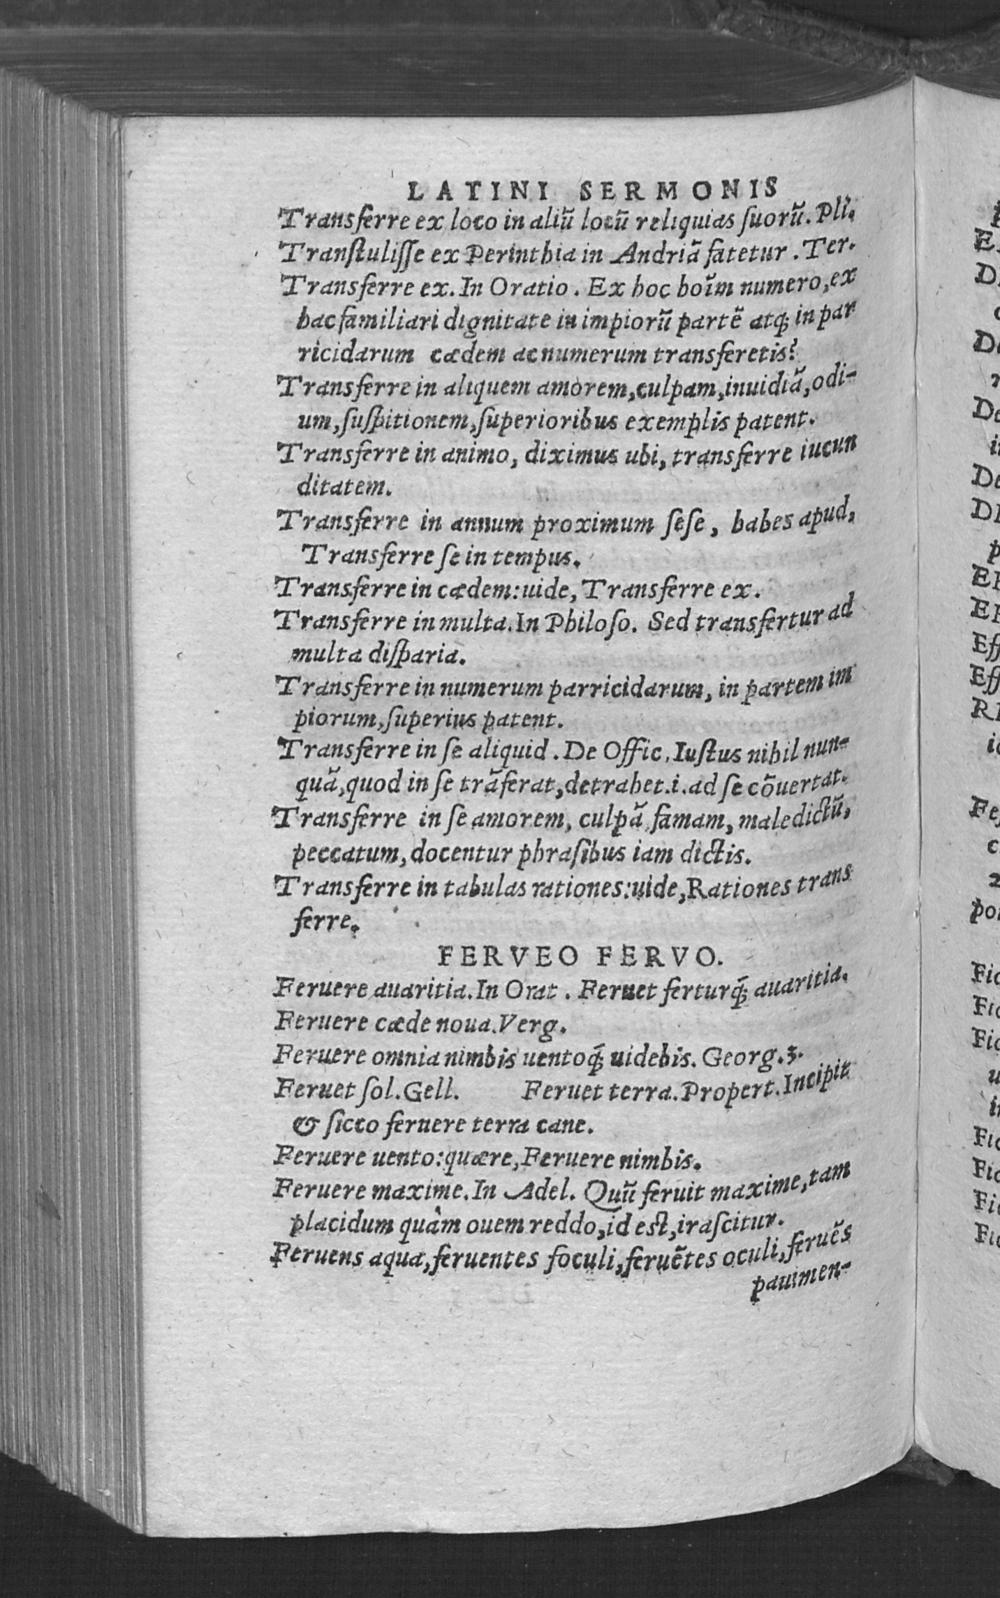 LATINI SERMONIS
Transferre ex loco in aliũ locũ reliquias ſuorũ. Pli.
Tranſtuliſſe ex Perinthia in Andriã fatetur. Ter.
Transferre ex. In Oratio. Ex hoc hoĩm numero, ex
hac familiari dignitate in impiorũ partẽ atq́; in par
ricidarum cædem ac numerum transferetis?
Transferre in aliquem amorem, culpam, inuidiã, odi-
um, ſuſpitionem, ſuperioribus exemplis patent.
Transferre in animo, diximus ubi, transferre iucun
ditatem.
Transferre in annum proximum ſeſe, habes apud,
Transferre ſe in tempus.
Transferre in cædem: uide, Transferre ex.
Transferre in multa. In Philoſo. Sed transfertur ad
multa diſparia.
Transferre in numerum parricidarum, in partem im
piorum, ſuperius patent.
Transferre in ſe aliquid. De Offic. Iuſtus nihil nun-
quã, quod in ſe trãſferat, detrahet. i. ad ſe cõuertat.
Transferre in ſe amorem, culpã, famam, maledictũ,
peccatum, docentur phraſibus iam dictis.
Transferre in tabulas rationes: uide, Rationes trans
ferre.
FERVEO FERVO.
Feruere auaritia. In Orat. Feruet ferturq́; auaritia.
Feruere cæde noua. Verg.
Feruere omnia nimbis uentoq́; uidebis. Georg. 3.
Feruet ſol. Gell. Feruet terra. Propert. Incipit
& ſicco feruere terra cane.
Feruere uento: quære, Feruere nimbis.
Feruere maxime. In Adel. Quũ feruit maxime, tam
placidum quàm ouem reddo, id eſt, iraſcitur.
Feruens aqua, feruentes foculi, feruẽtes oculi, feruẽs
pauimen-